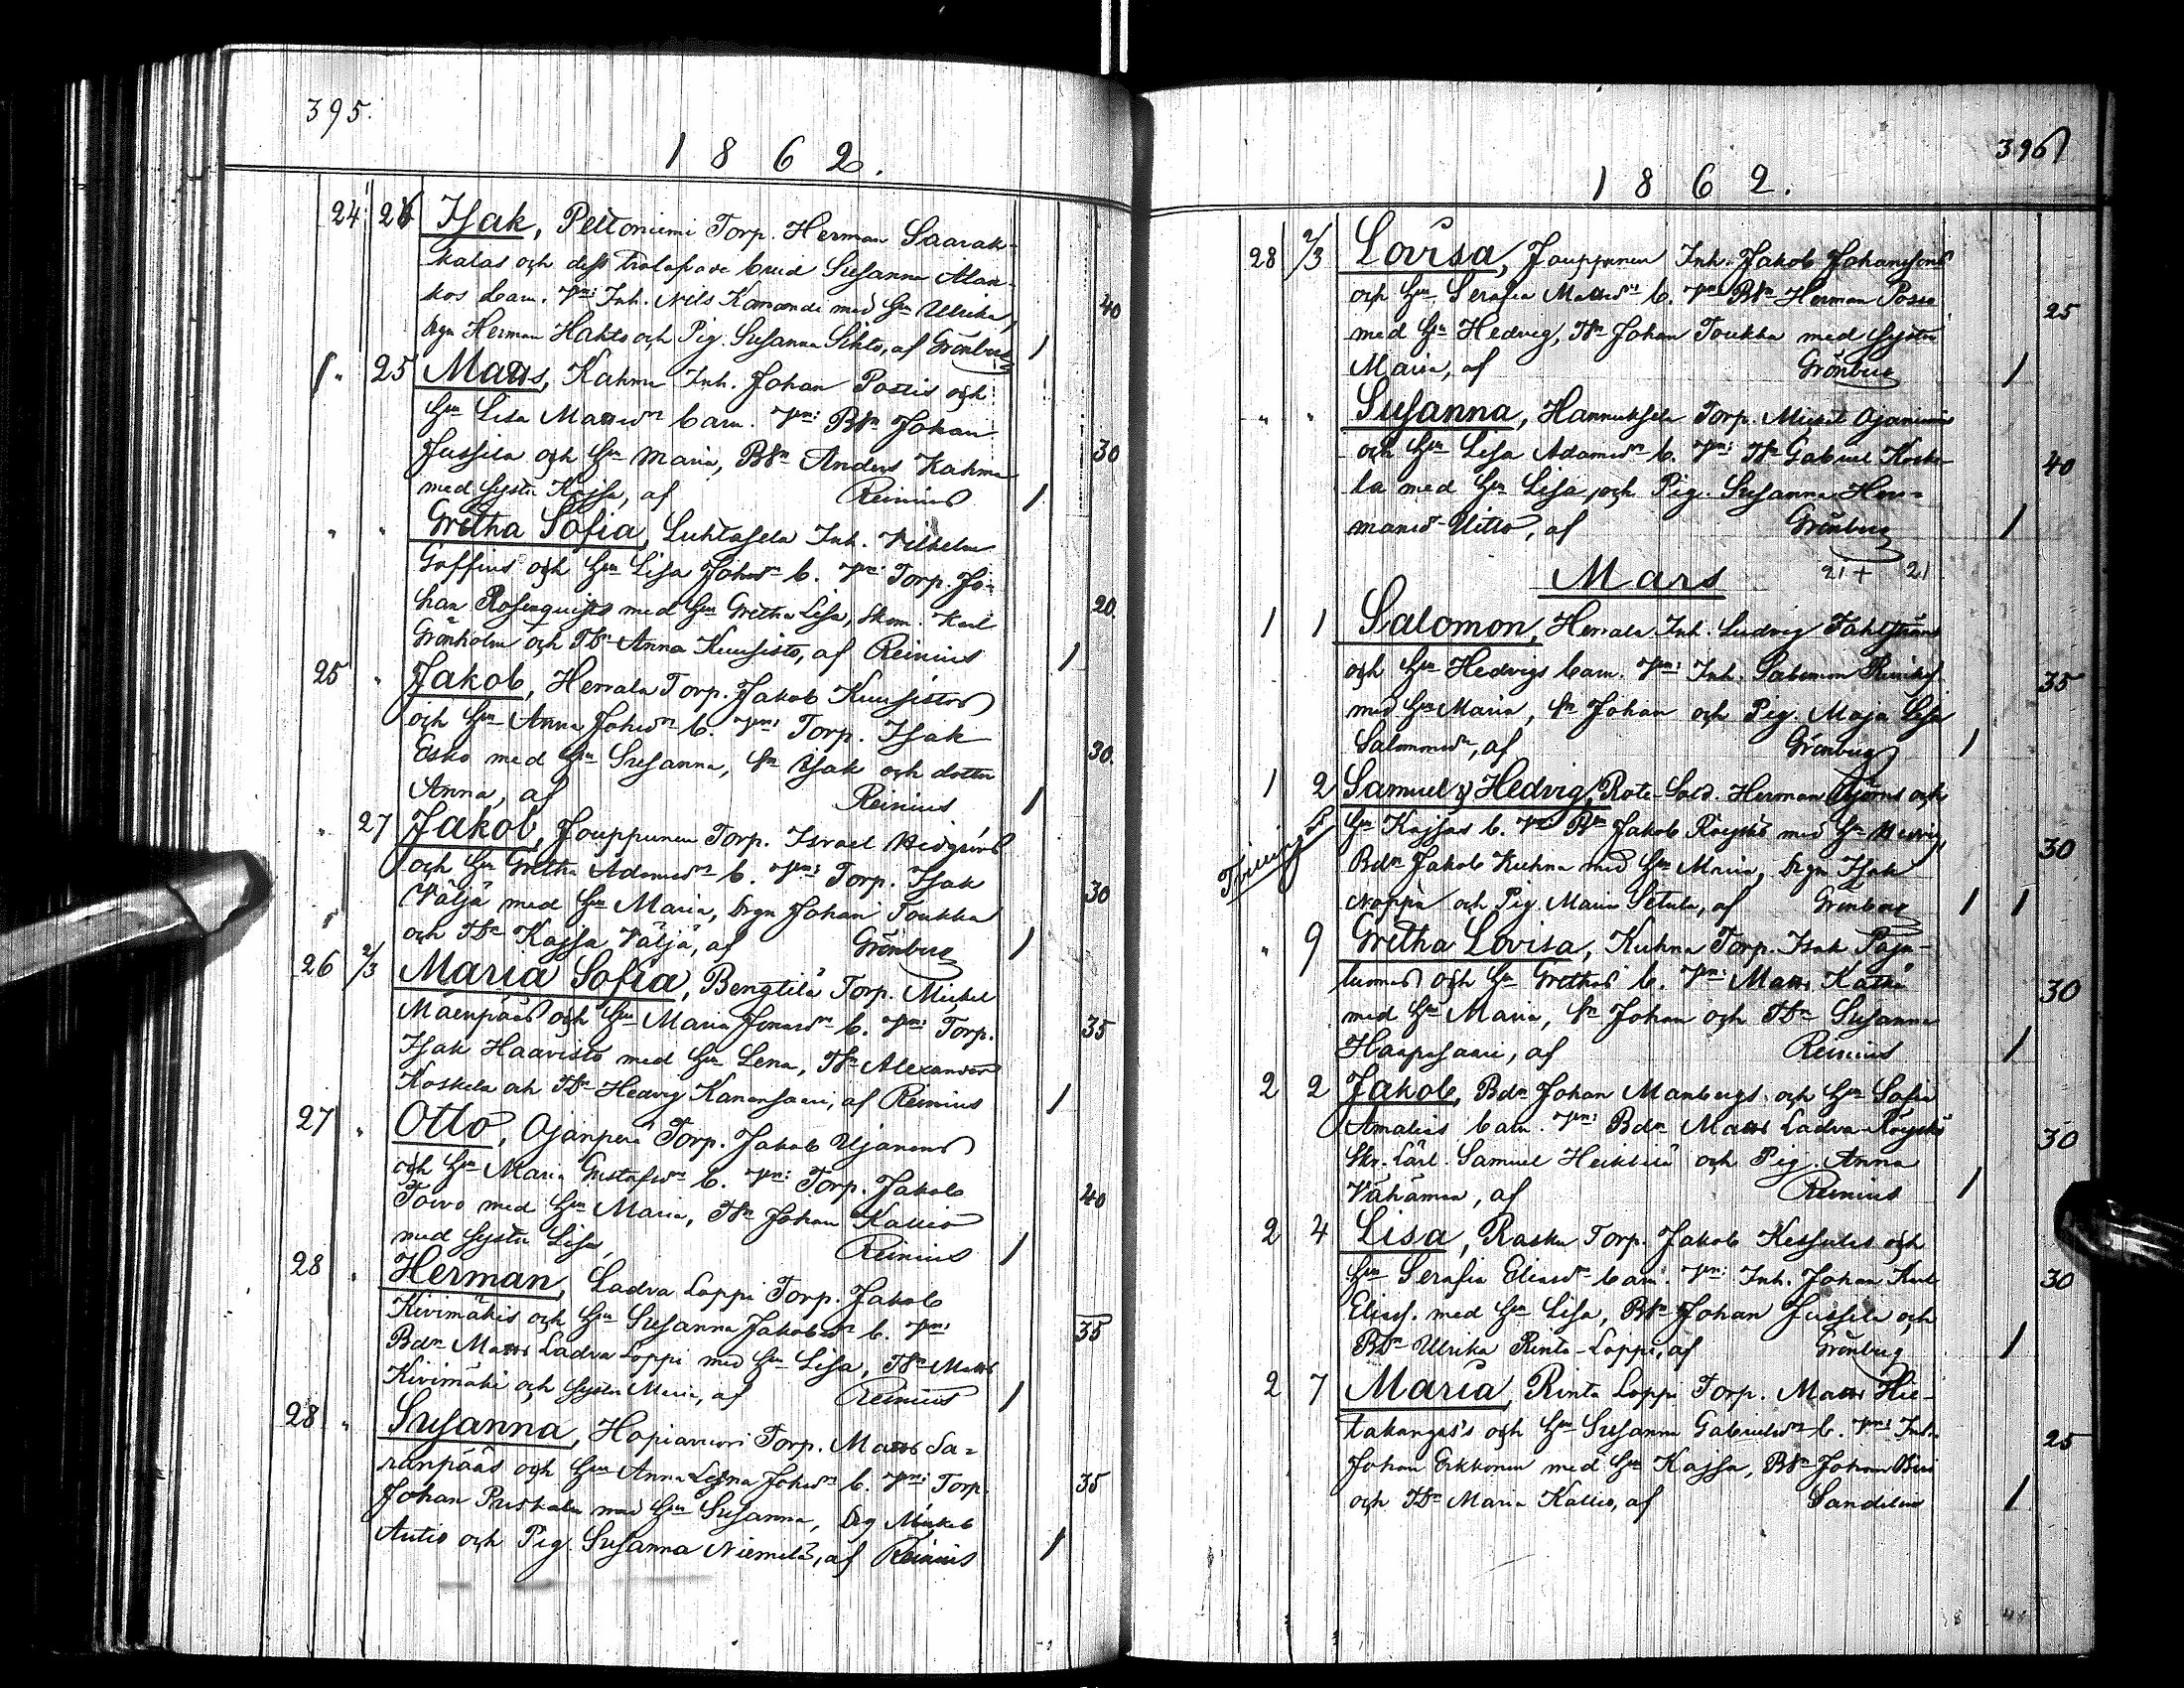 395.
1 8 6 2.
24 26 Isak, Peltoniemi Torp. Herman Saarak-
kalas och dess trolofvade brud Susanna Alan-
kos barn. Vn: Inh. Nils Komonde med Hu Ulrika,
drgn Herman Hahto och Pig. Susanna Sihto, af Grönberg 1 40
" 25 Matts, Kahma Inh. Johan Postis och
Hu Lisa Mattsdr barn. Vn: BSn Johan
Jussila och Hu Maria, BSn Anders Kahma 30
med Syster Kajsa, af Reinius 1
" " Gretha Sofia, Luhtasela Inh. Vilhelm
och Hu Lisa Johsdr b. Vn: Torp. Jo-
han Rosenqvists med Hu Gretha Lisa, Skom. Karl 20.
Grönholm och TDr Anna Kuusisto, af Reinius 1
25 " Jakob, Herrala Torp. Jakob Kuusistos
och Hu Anna Johsdr b. Vn: Torp. Isak
Esko med Hu Susanna, Sn Isak och dotter 30.
Anna, af Reinius 1
" 27 Jakob, Jouppunen Torp. Israel
och Hu Gretha Adamsdr b. Vn: Torp. Isak
Väljä med Hu Maria, drgn Johan Toukka 30
och TDr Kajsa Väljä, af Grönberg 1
26 2/3 Maria Sofia, Bengtilä Torp. Mickel
Mäenpääs och Hu Maria Jonasdr b. Vn: Torp.
Isak Haavisto med Hu Lena, TSn Alexander 35
Koskela och TDr Hedvig Kanansaari, af Reinius 1
27 " Otto, Ojanperä Torp. Jakob Ujanens
och Hu Maria Gustafsdr b. Vn: Torp. Jakob
Toivo med Hu Maria, TSn Johan Kallio 40
med Syster Lisa, Reinius 1
28 " Herman, Ladva Loppi Torp. Jakob
Kivimäkis och Hu Susanna Jakobsdr b. Vn:
Bdn Matts Ladva Loppi med Hu Lisa, TSn Matts 35
Kivimäki och Syster Maria, af Reinius 1
28 " Susanna, Torp. Matts Sa-
ranpääs och Hu Anna Lena Johsdr b. Vn: Torp.
Johan med Hu Susanna, Drg Mickel 35
Autio och Pig. Susanna Niemelä, af Reinius 1
396
1 8 6 2.
28 2/3 Lovisa, Jouppunen Inh. Jakob Johanssons
och Hu Serafia Mattsdr b. Vn: BSn Herman Posio
med Hu Hedvig, TSn Johan Toukka med Syster 25
Maria, af Grönberg 1
" " Susanna, Hannuksela Torp. Mickel Ojaniemis
och Hu Lisa Adamsdr b. Vn: TSn Gabriel Koske-
la med Hu Lisa, och Pig. Susanna Her- 40
mansdr Uitto, af Grönberg 1
Mars 21 + 21
1 1 Salomon, Herrala Inh. Ludvig Fahlströms
och Hu Hedvigs barn. Vn: Inh. Salomon
med Hu Maria, Sn Johan och Pig. Maja Lisa 35
Salomonsdr, af Grönberg 1
1 2 Samuel & Hedvig, Rote-Sold. Herman och
Tvillingar Hu Kajsas b. Vn: BSn Jakob med Hu Hedvig,
Bdn Jakob Kuhna med Hu Maria, drgn Isak 30
Noppa och Pig. Maria Setula, af Grönberg 1 1
" 9 Gretha Lovisa, Kuhna Torp. Isak Paju-
lumas och Hu Grethas b. Vn: Matts Kätkä
med Hu Maria, Sn Johan och TDr Susanna 30
Haapasaari, af Reinius 1
2 2 Jakob, Bdn Johan Manbergs och Hu Sofia
Amalias barn. Vn: Bdn Matts Ladva-
Skr. Lärl. Samuel Heikkilä och Pig. Anna 30
Vähämaa, af Reinius 1
2 4 Lisa, Rasku Torp. Jakob och
Hu Serafia Eliasdr barn. Vn: Inh. Johan Karl
Eliass. med Hu Lisa, BSn Johan Jussila och 30
BDr Ulrika Rinta-Loppi, af Grönberg 1
2 7 Maria, Rinta Loppi Torp. Matts Hie-
takangas's och Hu Susanna Gabrielsdr b. Vn: Inh.
Johan Erkkonen med Hu Kajsa, BSn Johan 25
och TDr Maria Kallio, af Sandelin 1